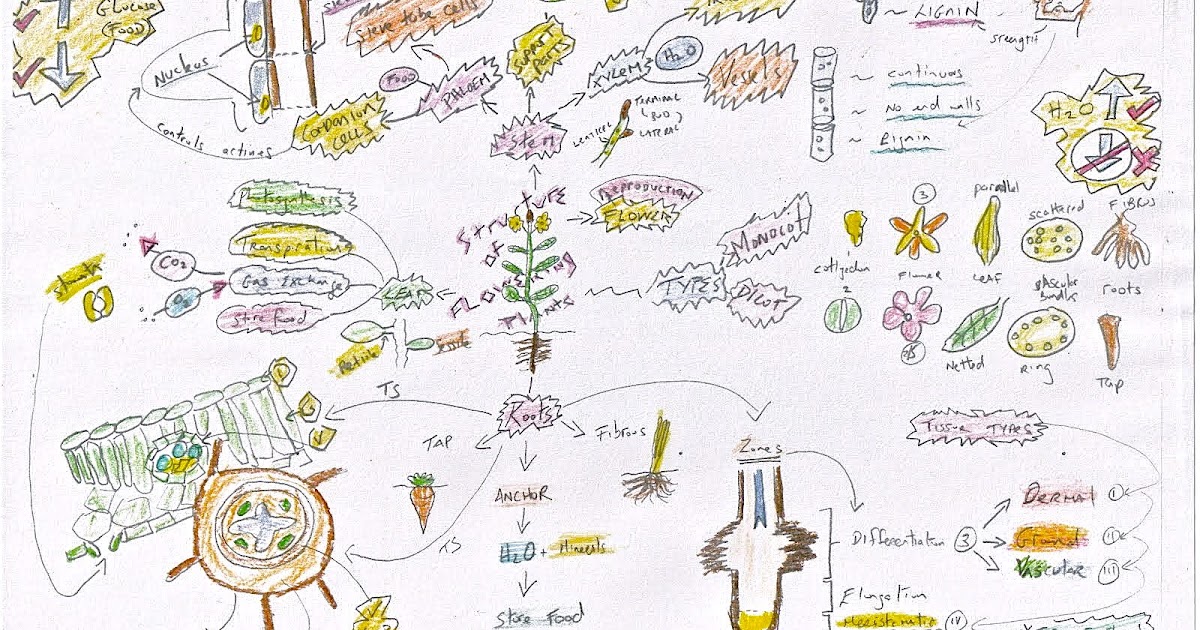 Glucose
(FOOD)
Sieve tube cells
Nucleus
Controls actines
Companion
Cells
FOOD
PHLOEM
Support
Parts
XYLEM
H2O
Vessels
LIGNIN
strength
~ continuos
~ No end walls
~ Lignin
H2O
Stem
LENTICEL
TERMINAL
(BUD)
LATERAL
Structure
of
Flowering
Plants
REPRODUCTION
FLOWER
TYPES
MONOCOT
DICOT
Photosynthesis
Transpiration
Gas Exchange
Store food
CO2
O2
LEAF
Stomata
Petiole
3
parallel
scattered
FIBRUS
Cotyledon
2
Flower
LEAF
VAscular
bundles
roots
Netted
Ring
Tap
TS
Roots
TAP
Fibrous
Zones
TISSUE TYPES
ANCHOR
H2O + Minerals
Store Food
TS
Differentiation 3
DERMAL i
Ground ii
VASCULAR iii
Elongation
Meristematic iv